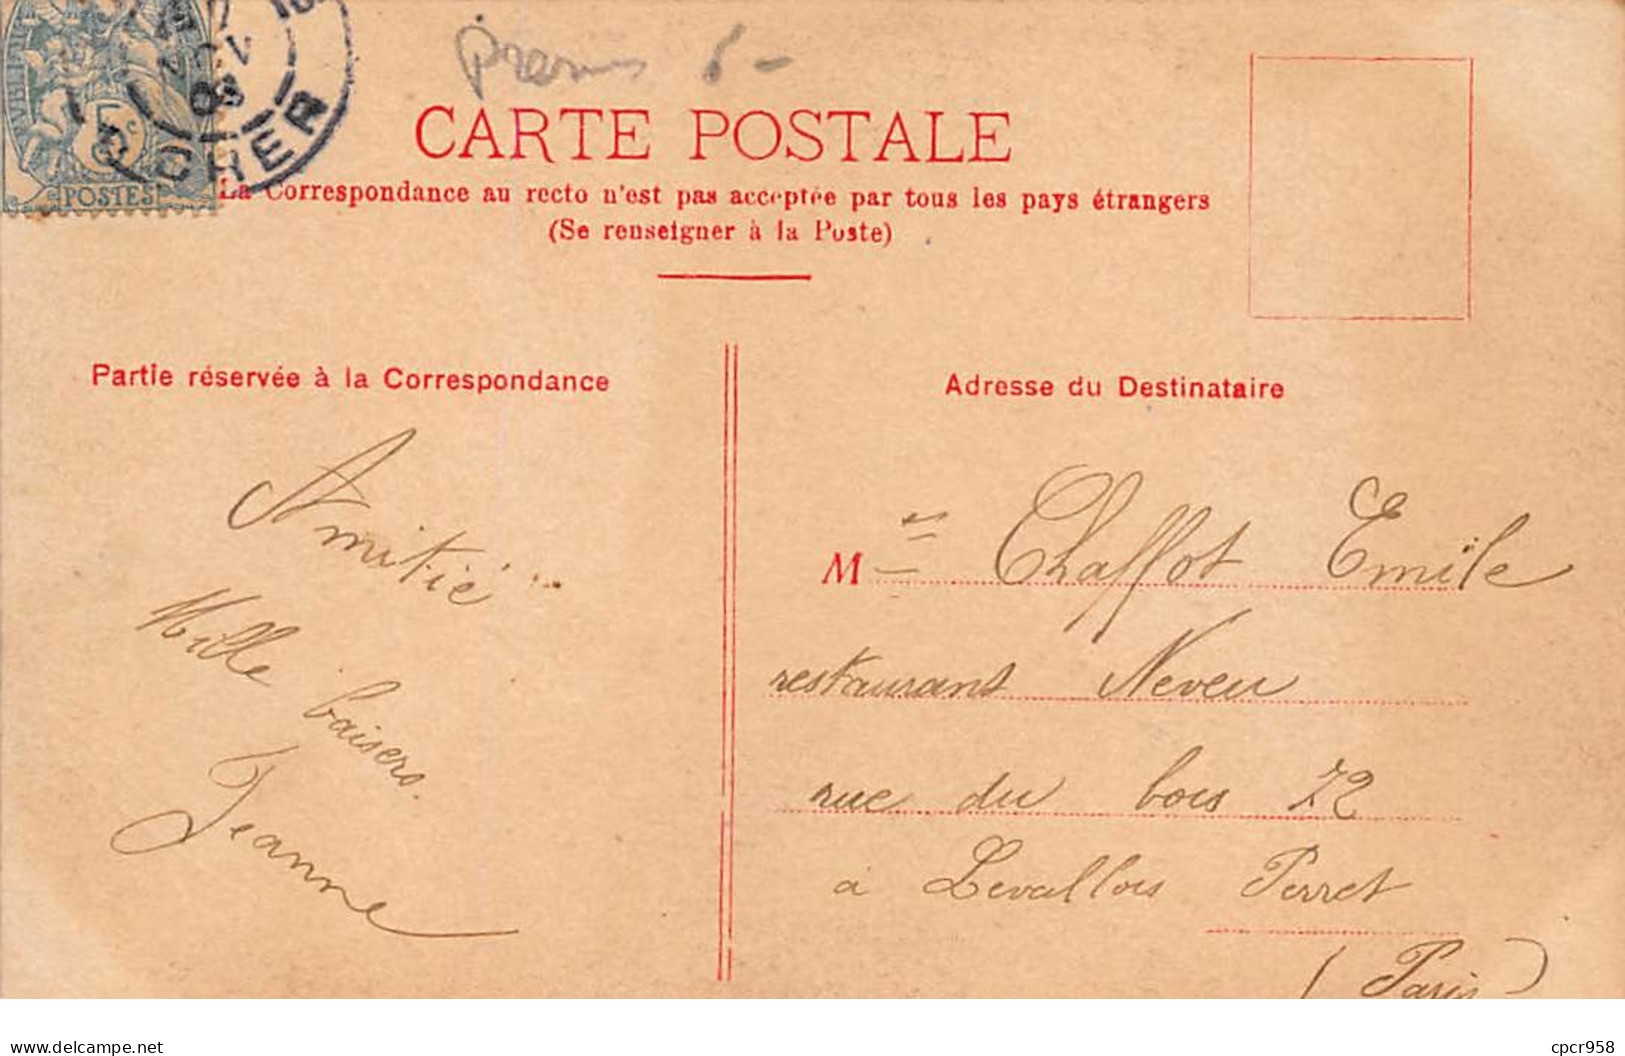 CARTE POSTALE
La Correspondance au recto n'est pas acceptée par tous les pays étrangers
(Se renseigner à la Poste)
5c
POSTES
CHER
Partie réservée à la Correspondance
Amitié
Mille baisers.
Jeanne
Adresse du Destinataire
M Chaffot Emile
restaurant Neveu
rue du bois 72
à Levallois Perret
(Paris)
delcampe.net
cpcr958